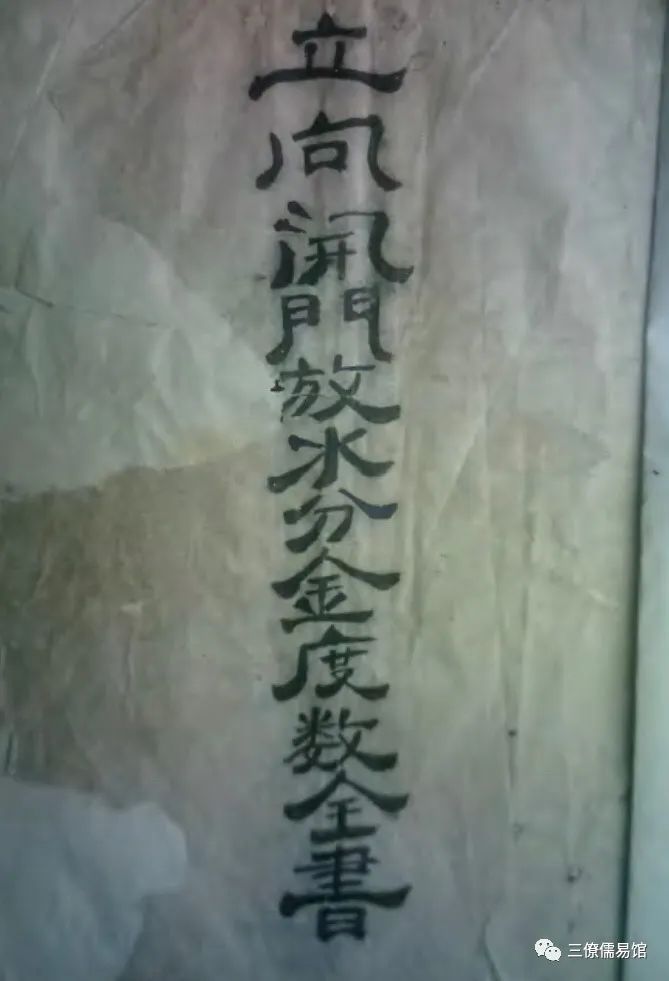 立向開門放水分金度数全書
三僚儒易馆